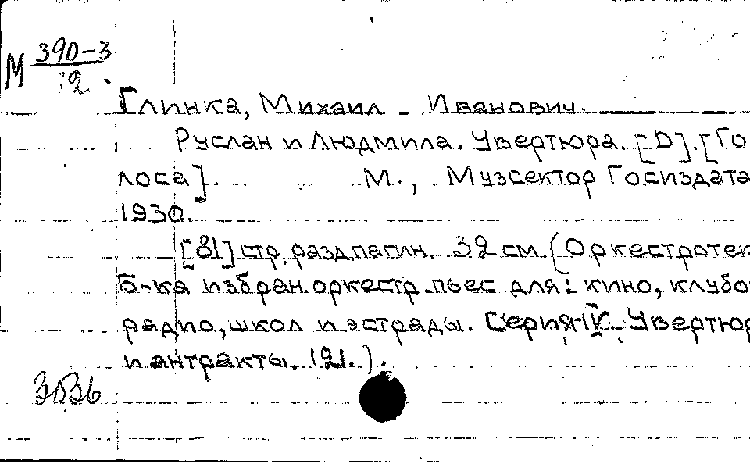 М 390-3
12
Глинка, Михаил Иванович.
Руслан и Людмила. Увертюра. [D]. [Го
лоса]. М., Музсектор Госиздата
1930.
[81] стр. разд. пагин. 32 см. (Оркестротек
Б-ка избран. оркестр. пьес для: кино, клубо
радио, школ и эстрады. Серия IV. Увертюр
и антракты. 121.).